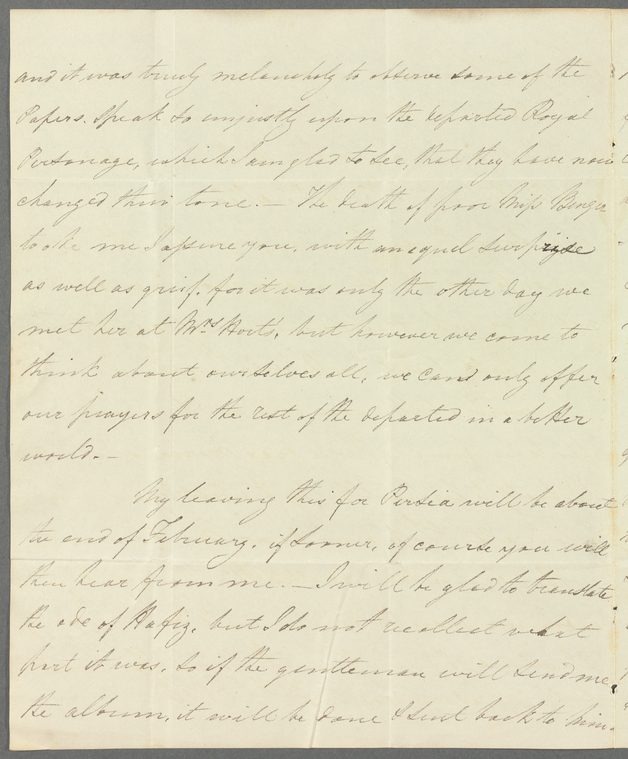 and it was truly melancholy to observe some of the
Papers. Speak so unjustly upon the departed Royal
Personage, which I am glad to see, that they have now
changed their tone. — The death of poor Miss Benger
tooke me I assure you, with an equel Surprize
as well as grief. for it was only the other day we
met her at Mrs Hort's, but however we come to
think about ourselves all, we can only offer
our prayers for the rest of the departed in a better
world. —
My leaving this for Persia will be about
the end of February. if sooner, of course you will
then hear from me. — I will be glad to translate
the ode of Hafiz. but I do not recollect what
part it was, so if the gentleman will send me
the album, it will be done & send back to him.